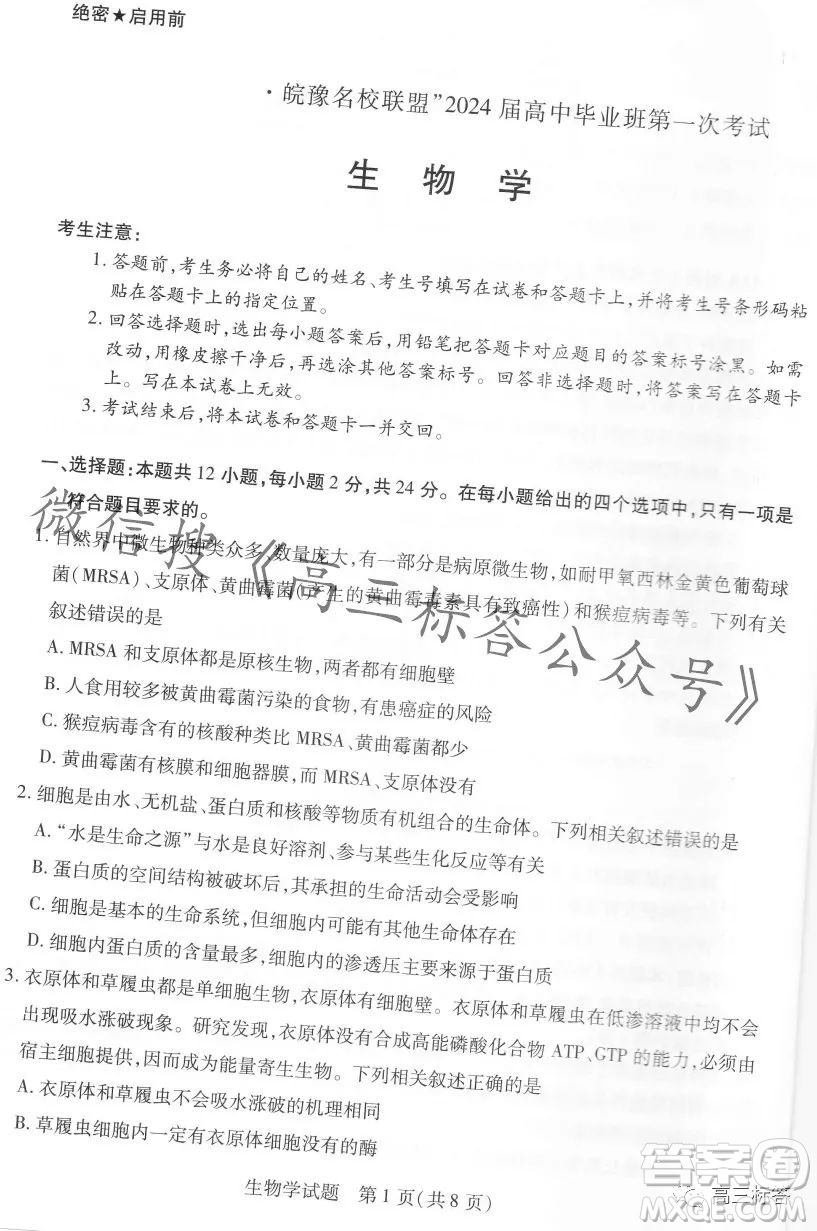 绝密★启用前
·皖豫名校联盟”2024届高中毕业班第一次考试
生 物 学
考生注意:
1.答题前,考生务必将自己的姓名、考生号填写在试卷和答题卡上,并将考生号条形码粘
贴在答题卡上的指定位置。
2.回答选择题时,选出每小题答案后,用铅笔把答题卡对应题目的答案标号涂黑。如需
改动,用橡皮擦干净后,再选涂其他答案标号。回答非选择题时,将答案写在答题卡
上。写在本试卷上无效。
3.考试结束后,将本试卷和答题卡一并交回。
一、选择题:本题共12小题,每小题2分,共24分。在每小题给出的四个选项中,只有一项是
符合题目要求的。
1.自然界中微生物种类众多、数量庞大,有一部分是病原微生物,如耐甲氧西林金黄色葡萄球
菌(MRSA)、支原体、黄曲霉菌(产生的黄曲霉毒素具有致癌性)和猴痘病毒等。下列有关
叙述错误的是
A. MRSA和支原体都是原核生物,两者都有细胞壁
B. 人食用较多被黄曲霉菌污染的食物,有患癌症的风险
C. 猴痘病毒含有的核酸种类比MRSA、黄曲霉菌都少
D. 黄曲霉菌有核膜和细胞器膜,而MRSA、支原体没有
2.细胞是由水、无机盐、蛋白质和核酸等物质有机组合的生命体。下列相关叙述错误的是
A.“水是生命之源”与水是良好溶剂、参与某些生化反应等有关
B. 蛋白质的空间结构被破坏后,其承担的生命活动会受影响
C. 细胞是基本的生命系统,但细胞内可能有其他生命体存在
D. 细胞内蛋白质的含量最多,细胞内的渗透压主要来源于蛋白质
3.衣原体和草履虫都是单细胞生物,衣原体有细胞壁。衣原体和草履虫在低渗溶液中均不会
出现吸水涨破现象。研究发现,衣原体没有合成高能磷酸化合物ATP、GTP的能力,必须由
宿主细胞提供,因而成为能量寄生生物。下列相关叙述正确的是
A. 衣原体和草履虫不会吸水涨破的机理相同
B. 草履虫细胞内一定有衣原体细胞没有的酶
生物学试题 第1页(共8页)
微信搜《高三标答公众号》
高三标答
答案圈
MXQE.COM